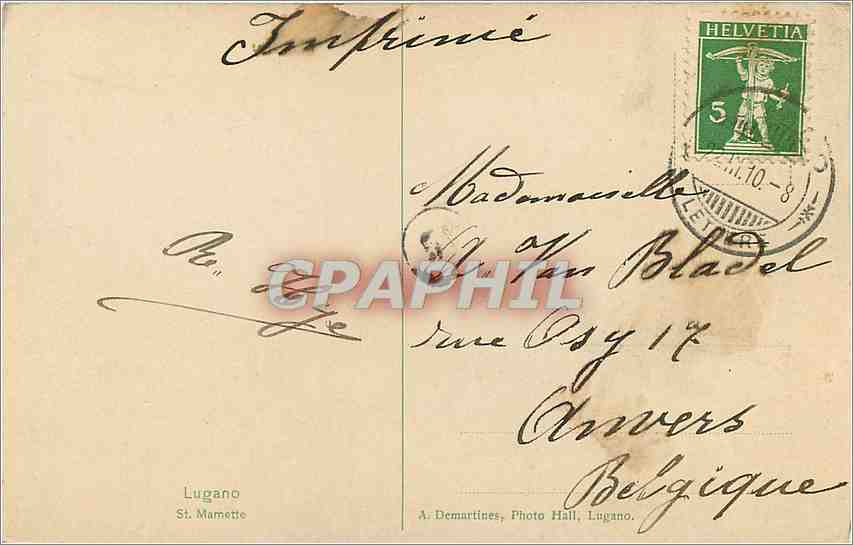 Imprimé
HELVETIA
5
III.10.-8
LETTERE
Mademoiselle
A. Van Bladel
rue Osy 17
Anvers
Belgique
R.
CPAPHIL
Lugano
St. Mamette
A. Demartines, Photo Hall, Lugano.